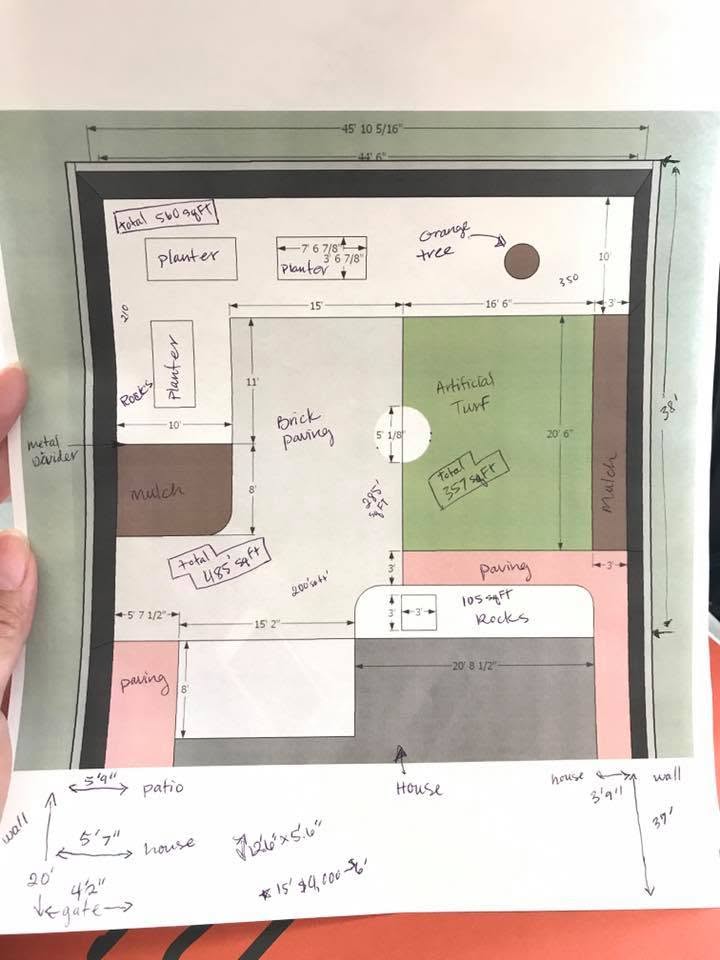 45' 10 5/16"
44' 6"
Total 560 sqft
Planter
7' 6 7/8"
3' 6 7/8"
Planter
Orange
tree
10'
350
210
15'
16' 6"
3'
Rocks
Planter
11'
Brick
paving
Artificial
Turf
38'
10'
5' 1/8"
20' 6"
metal
divider
Total
357 sqft
Mulch
Mulch
8'
285'
sqft
Total
485' sqft
200'sqft
3'
paving
3'
105 sqft
Rocks
3'
3'
5' 7 1/2"
15' 2"
20' 8 1/2"
paving
8'
5'9"
patio
House
house
wall
3'9"
wall
5'7"
house
12'6" x 5'.6"
37'
20'
4'2"
gate
15' $4,000 - 6'